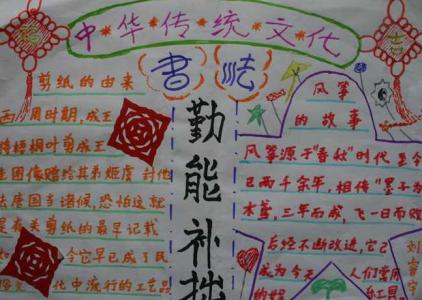 中华传统文化
福
吉
书法
剪纸的由来
西周时期,成王
将梧桐叶剪成王
圭图像赠给其弟姬虞 封他
去唐国当诸侯,恐怕这就
是有关剪纸的最早记载
今它早已成了民
化中流行的工艺品
勤能补拙
风筝
的故事
风筝源于"春秋"时代 至今
已两千余年,相传"墨子为
木鸢,三年而成,飞一日而败
后经不断改进,它已
成为今天 人们常用
的娱 具